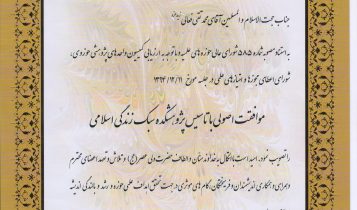 جناب حجت الاسلام و المسلمین آقای محمد تقی فعالی
به استناد مصوبه شماره ۵۸۵ شورای عالی حوزه های علمیه و با توجه به ارزیابی کمیسیون واحدهای پژوهشی حوزوی،
شورای اعطای مجوزها و امتیازهای علمی در جلسه مورخ ۱۳۹۳/۱۲/۱۱
موافقت اصولی با تأسیس پژوهشکده سبک زندگی اسلامی
را تصویب نمود. امید است با اتکال به خداوند منان و الطاف حضرت ولی عصر (عج) و تلاش و تعهد اعضای محترم
و همراهی و همکاری اندیشمندان و فرهیختگان، گام های موثری در جهت تحقق اهداف علمی حوزه و رشد و بالندگی اندیشه